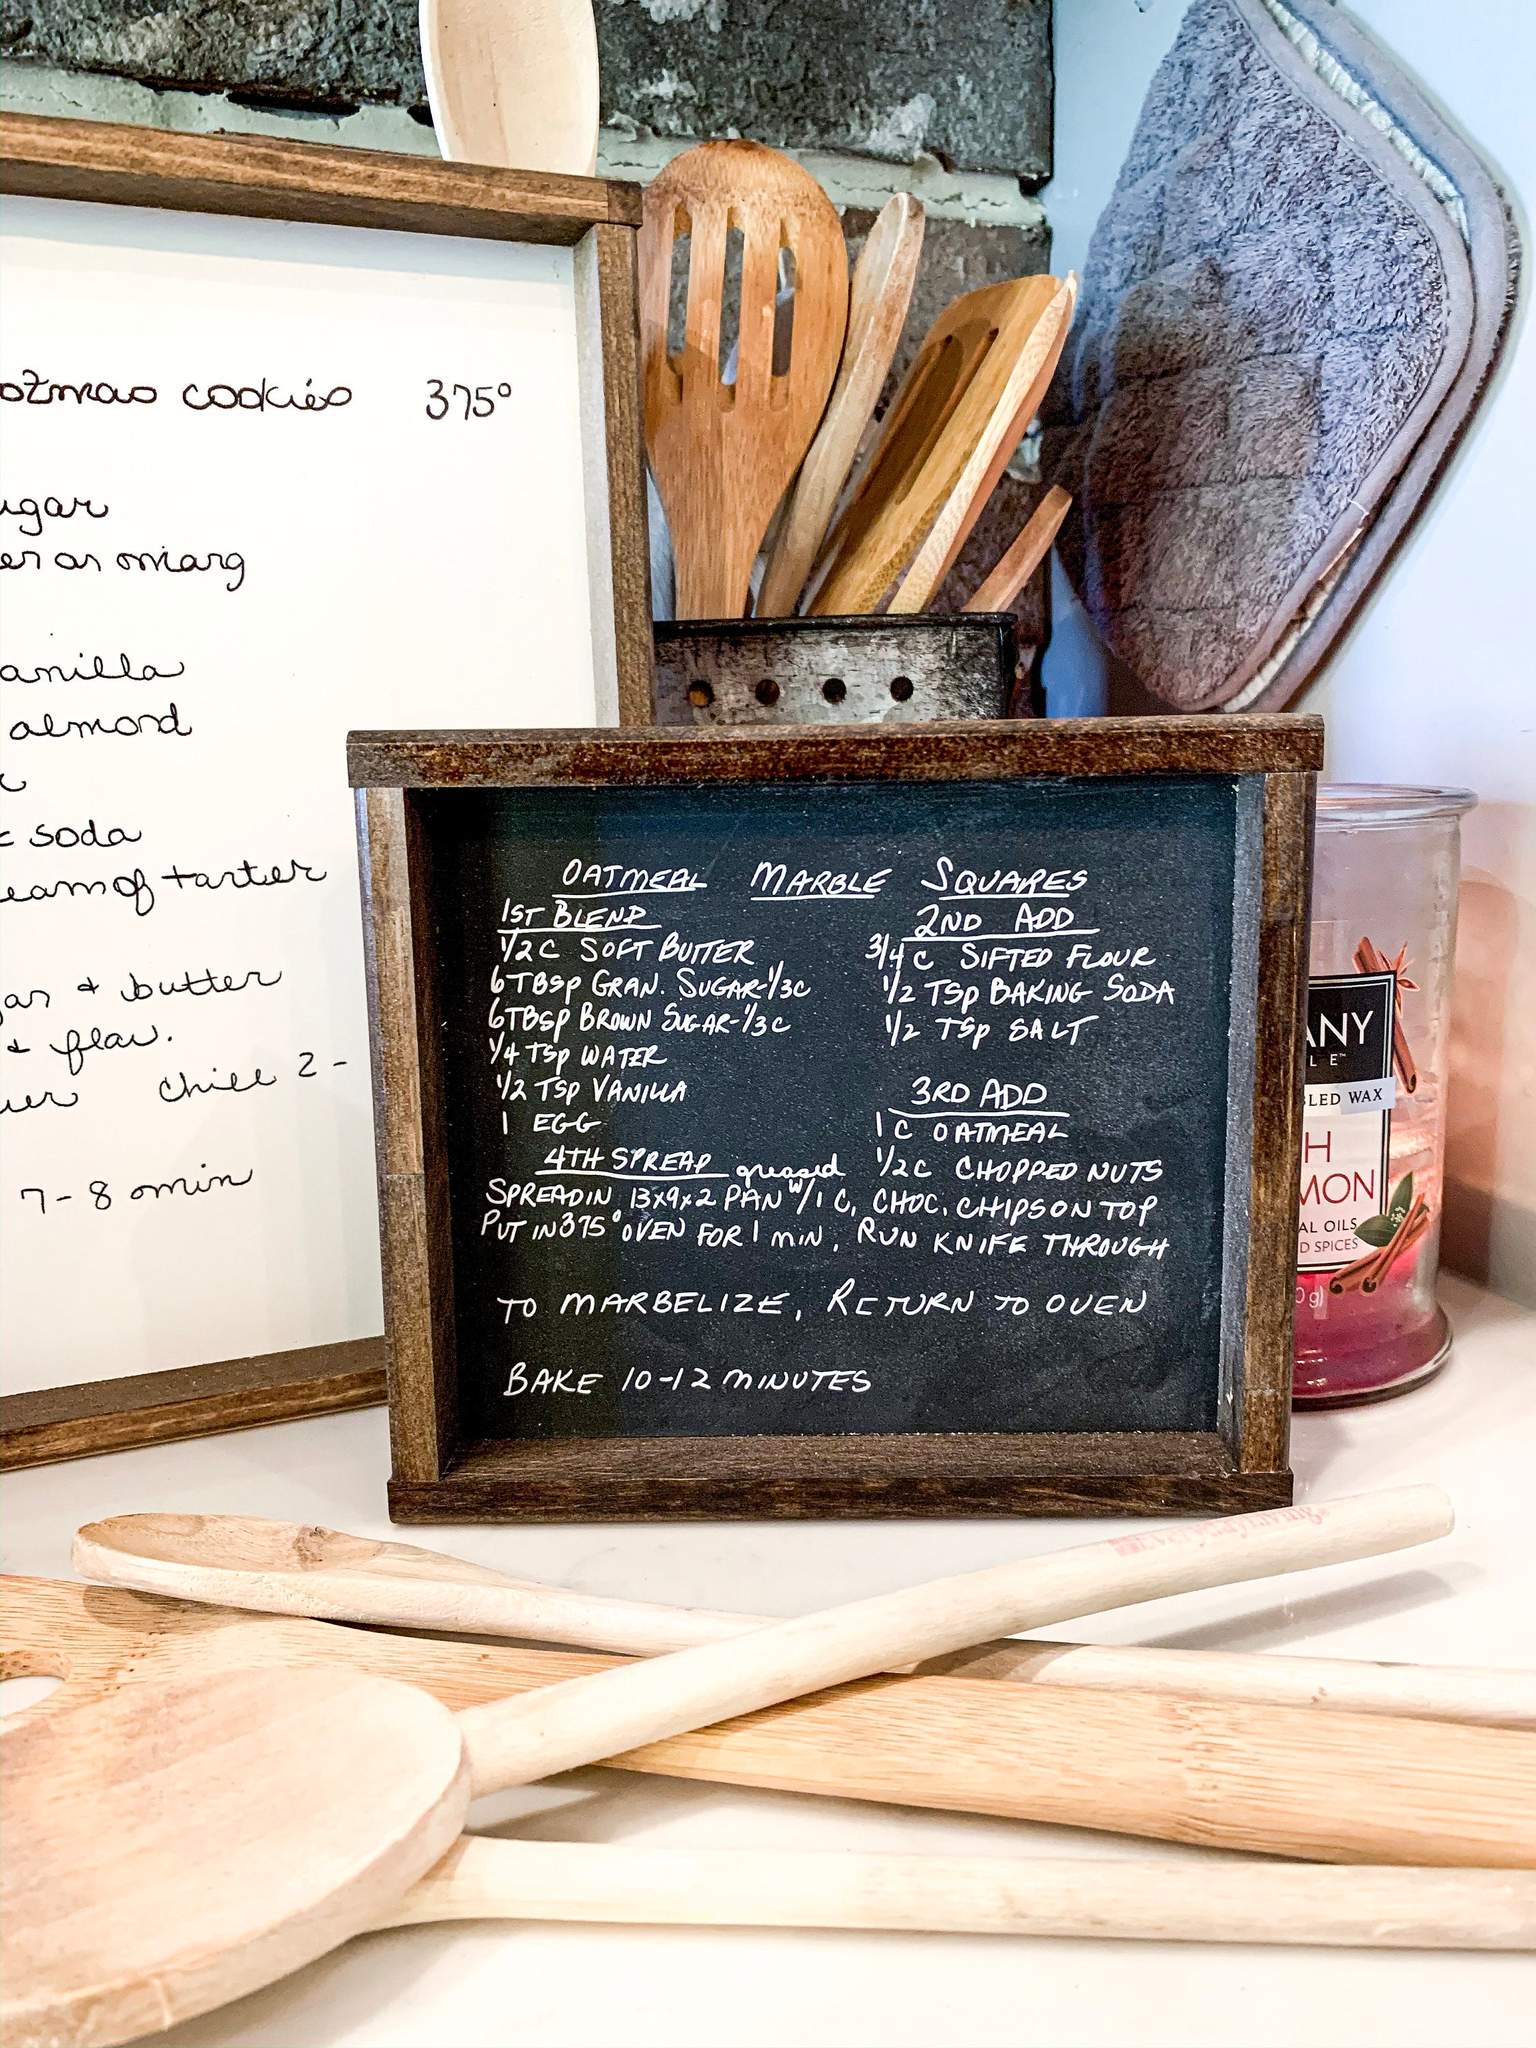 cookies 375°
ugar
er or marg
anilla
almond
soda
eam of tarter
& butter
& flav.
chill 2 -
7-8 min
OATMEAL MARBLE SQUARES
1ST BLEND
1/2 C SOFT BUTTER
6 TBSP GRAN. SUGAR-1/3C
6 TBSP BROWN SUGAR-1/3C
1/4 TSP WATER
1/2 TSP VANILLA
1 EGG
2ND ADD
3/4 C SIFTED FLOUR
1/2 TSP BAKING SODA
1/2 TSP SALT
3RD ADD
1 C OATMEAL
1/2 C CHOPPED NUTS
4TH SPREAD greased
SPREAD IN 13x9x2 PAN W/1 C. CHOC. CHIPS ON TOP
PUT IN 375° OVEN FOR 1 MIN, RUN KNIFE THROUGH
TO MARBELIZE, RETURN TO OVEN
BAKE 10-12 MINUTES
ANY
LE™
BLED WAX
H
MON
AL OILS
D SPICES
0 g)